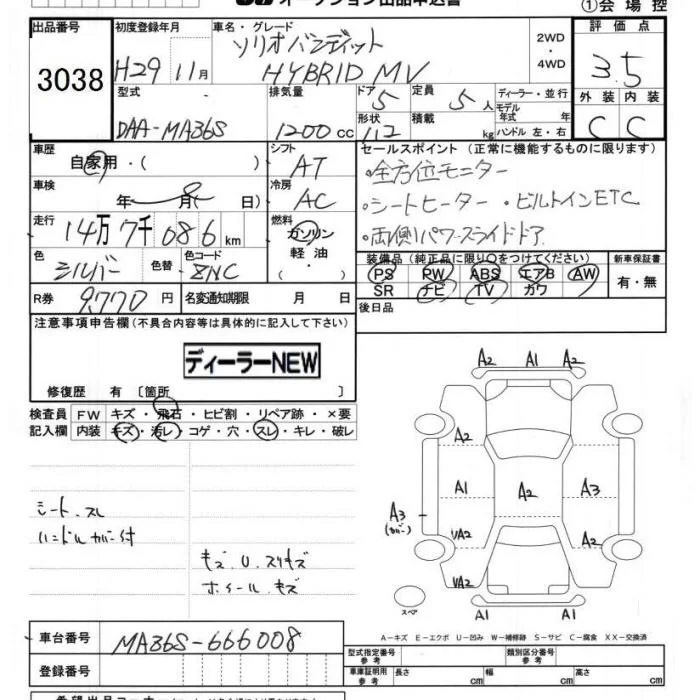 オークション出品申込書
①会場控
出品番号 初度登録年月 車名・グレード 評価点
3038
H29 11月
ソリオバンディット
HYBRID MV
2WD
・
4WD
3.5
型式 排気量 ドア 5 定員 5人 ディーラー・並行 外装 内装
モデル年式 年
DAA-MA36S 1200cc 形状 積載 kg ハンドル 左・右 C C
車歴 自家用・( ) シフト AT
セールスポイント(正常に機能するものに限ります)
・全方位モニター
車検 年 月( 日) 冷房 AC
・シートヒーター ・ビルトインETC
走行 14万7千086km 燃料 ガソリン
軽油
・( )
・両側パワースライドドア
色 シルバー 色替 色コード ZNC
装備品(純正品に限り○をつけてください) 新車保証書
PS PW ABS エアB AW
SR ナビ TV カワ
有・無
R券 9,770円 名変通知期限 月 日
後日品
注意事項申告欄(不具合内容等は具体的に記入して下さい)
ディーラーNEW
修復歴 有〔箇所 〕
検査員 FW キズ・飛石・ヒビ割・リペア跡・×要
記入欄 内装 キズ・汚レ・コゲ・穴・スレ・キレ・破レ
シート スレ
ハンドルカバー付
キズ.U.スリキズ
ホイール キズ
A2 A1 A2
A2
A1 A2 A3
A3
(カバー)
UA2 A2
UA2
A1 A1
スペア
A-キズ E-エクボ U-凹み W-補修跡 S-サビ C-腐食 XX-交換済
車台番号 MA36S-666008
登録番号
型式指定番号 参考 類別区分番号 参考
車庫証明用 参考 長さ cm 幅 cm 高さ cm